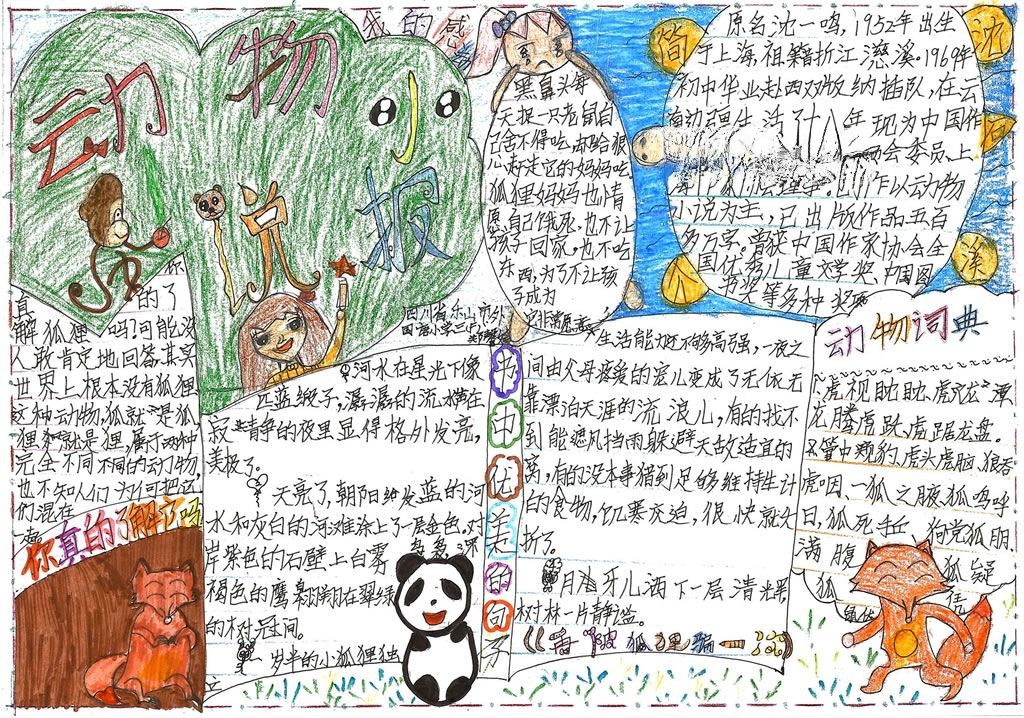 动物小说报
我的感
黑鼻头每
天捉一只老鼠自
己舍不得吃,却给狠
心赶走它的妈妈吃
狐狸妈妈也情
愿自己饿死,也不让
孩子回家,也不吃
东西,为了不让孩
子成为
四川省乐山市外
国语小学三
简
介
沈
石
溪
原名沈一鸣,1952年出生
于上海,祖籍折江慈溪.1969年
初中毕业赴西双版纳插队,在云
南边疆生活了十八年现为中国作
会委员,上
作以动物
小说为主,已出版作品五百
多万字。曾获中国作家协会全
国优秀儿童文学奖、中国图
书奖等多种奖项
你
真的了
解狐狸吗?可能没
人敢肯定地回答.其实
世界上根本没有狐狸
这种动物,狐就是狐
狸就是狸,属于两种
完全不同不同的动物,
也不知人们为何把这
们混在
你真的了解它吗
河水在星光下像
匹蓝缎子,潺潺的流水横在
寂静的夜里显得格外发亮,
美极了。
天亮了,朝阳给发蓝的河
水和灰白的河滩涂上了一层金色,对
岸紫色的石壁上白雾
袅袅,深
褐色的鹰翱翔在翠绿
的树冠间。
一岁半的小狐狸独
立
书中优美的句子
生活能力还不够高强,一夜之
间由父母疼爱的宠儿变成了无依无
靠漂泊天涯的流浪儿,有的找不
到能遮风挡雨躲避天敌适宜的
窝,有的没本事猎到足够维持生计
的食物,饥寒交迫,很快就夭
折了。
月牙儿洒下一层清光
树林一片静谧。
狐狸
动物词典
虎视眈眈、虎穴龙潭
龙腾虎跃、虎踞龙盘。
管中窥豹、虎头虎脑、狼吞
虎咽、一狐之腋、狐鸣呼
日,狐死兔丘、狗党狐朋、
满腹
狐疑
狐